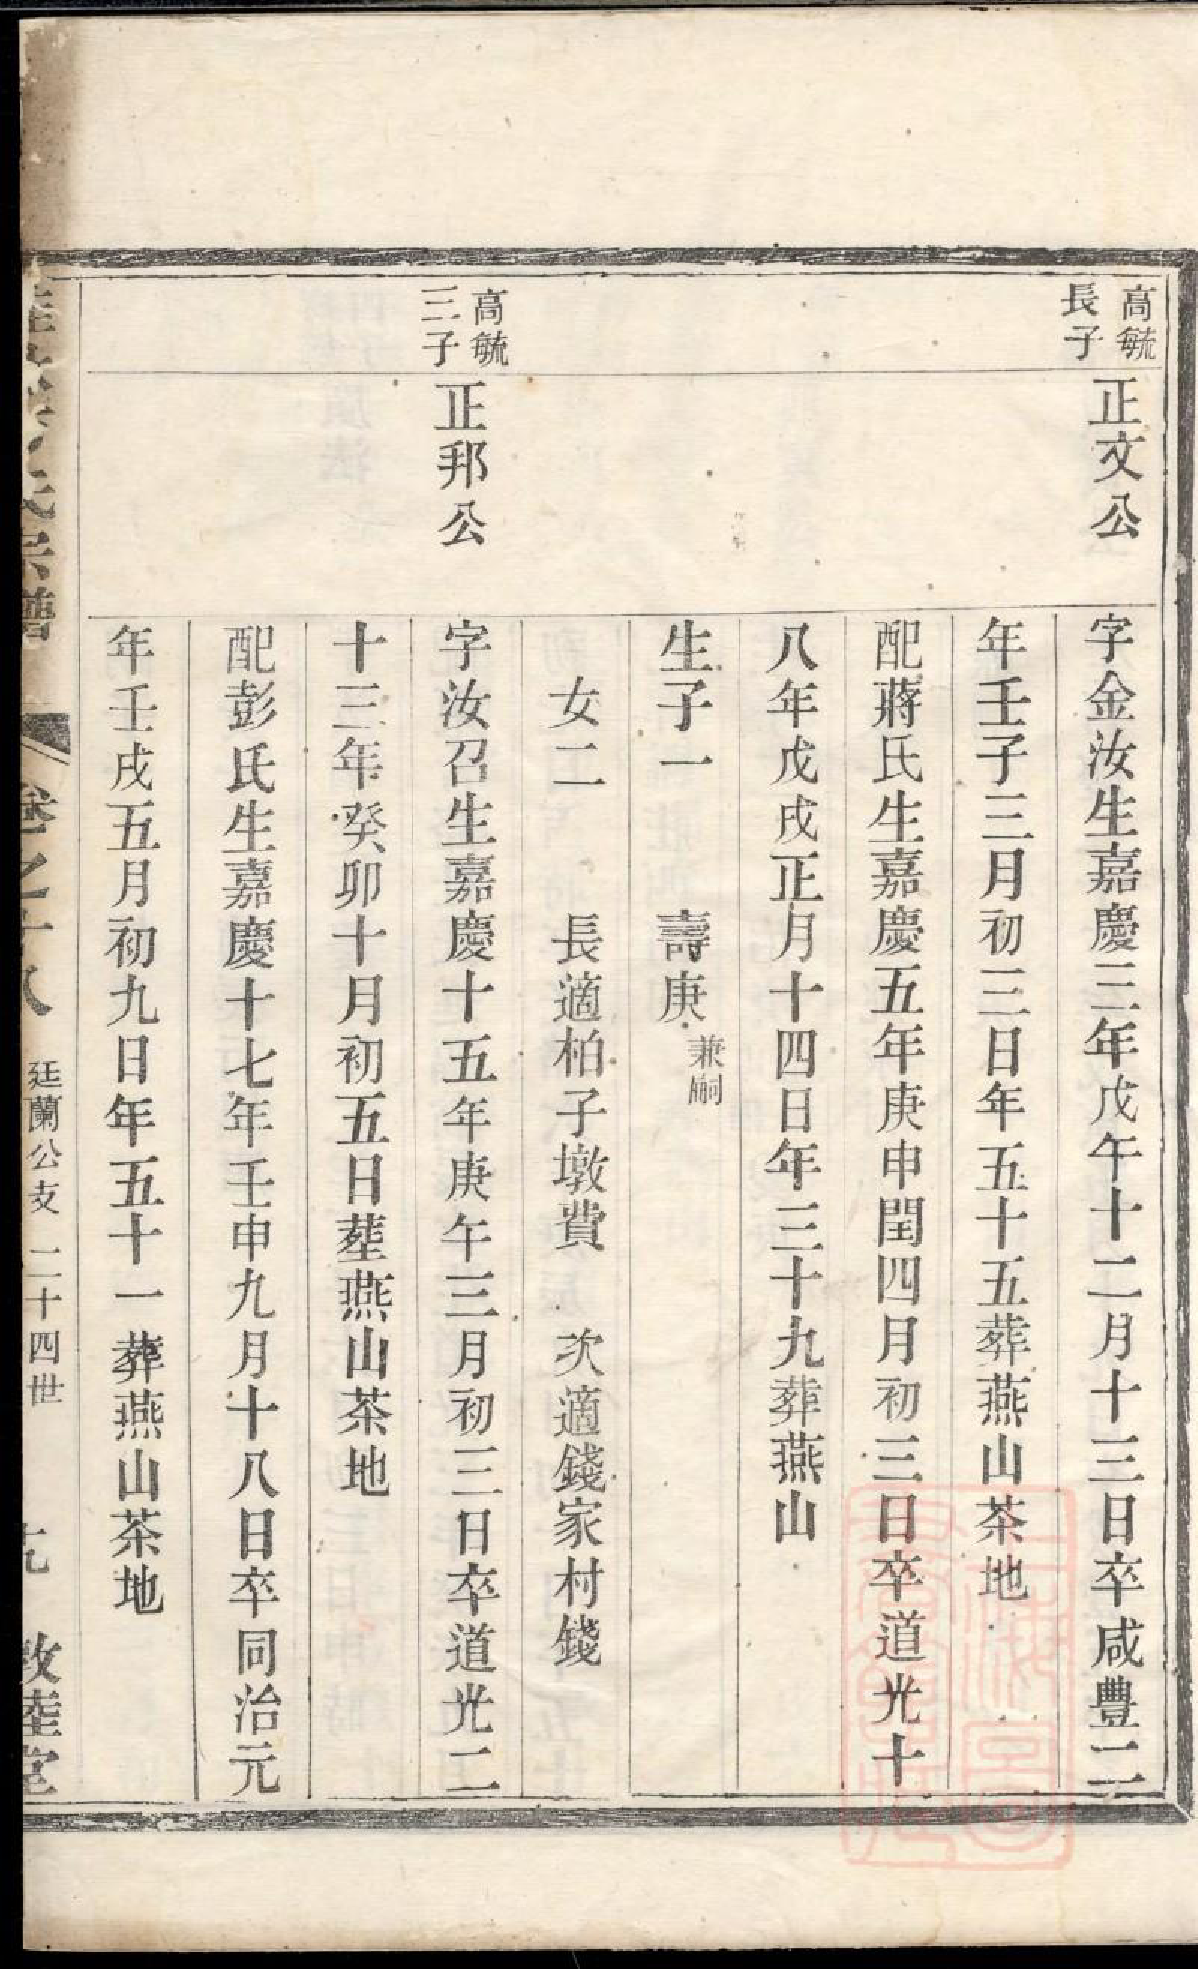 高毓
長子
正文公
字金汝生嘉慶三年戊午十二月十三日卒咸豐二
年壬子三月初三日年五十五葬燕山茶地
配蔣氏生嘉慶五年庚申閏四月初三日卒道光十
八年戊戌正月十四日年三十九葬燕山
生子一 壽庚 兼嗣
女二 長適柏子墩費 次適錢家村錢
高毓
三子
正邦公
字汝召生嘉慶十五年庚午三月初三日卒道光二
十三年癸卯十月初五日葬燕山茶地
配彭氏生嘉慶十七年壬申九月十八日卒同治元
年壬戌五月初九日年五十一葬燕山茶地
氏宗譜 卷之十八 廷蘭公支 二十四世 敦睦堂